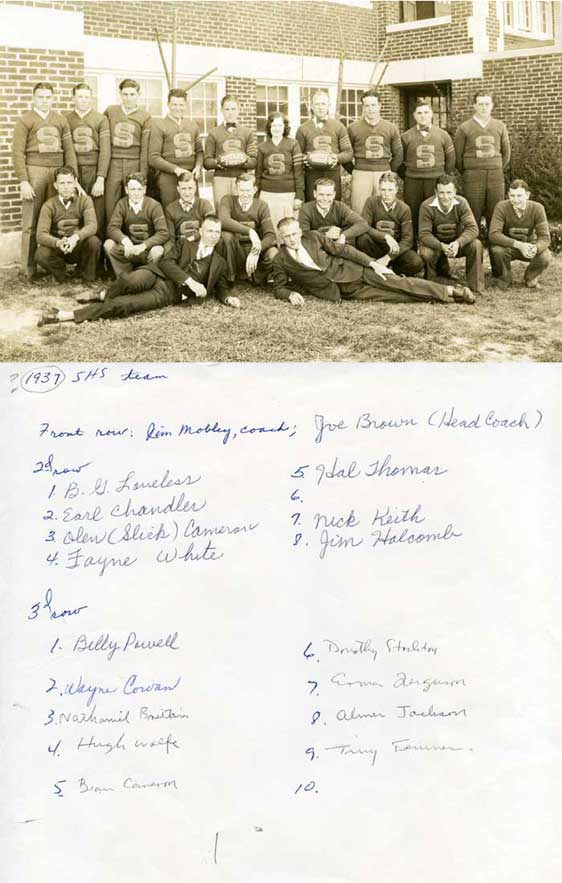 S S S S S S S S
S S S
? 1937 SHS team
Front row: Jim Mobley, coach; Joe Brown (Head Coach)
2d row
1. B. G. Loveless
2. Earl Chandler
3. Olen (Slick) Cameron
4. Fayne White
5. Hal Thomas
6.
7. Nick Keith
8. Jim Halcomb
3d row
1. Billy Powell
2. Wayne Cowan
3. Nathaniel Brittain
4. Hugh Wolfe
5 Bean Cameron
6. Dorothy
7. Ferguson
8. Almer Jackson
9. Tiny
10.